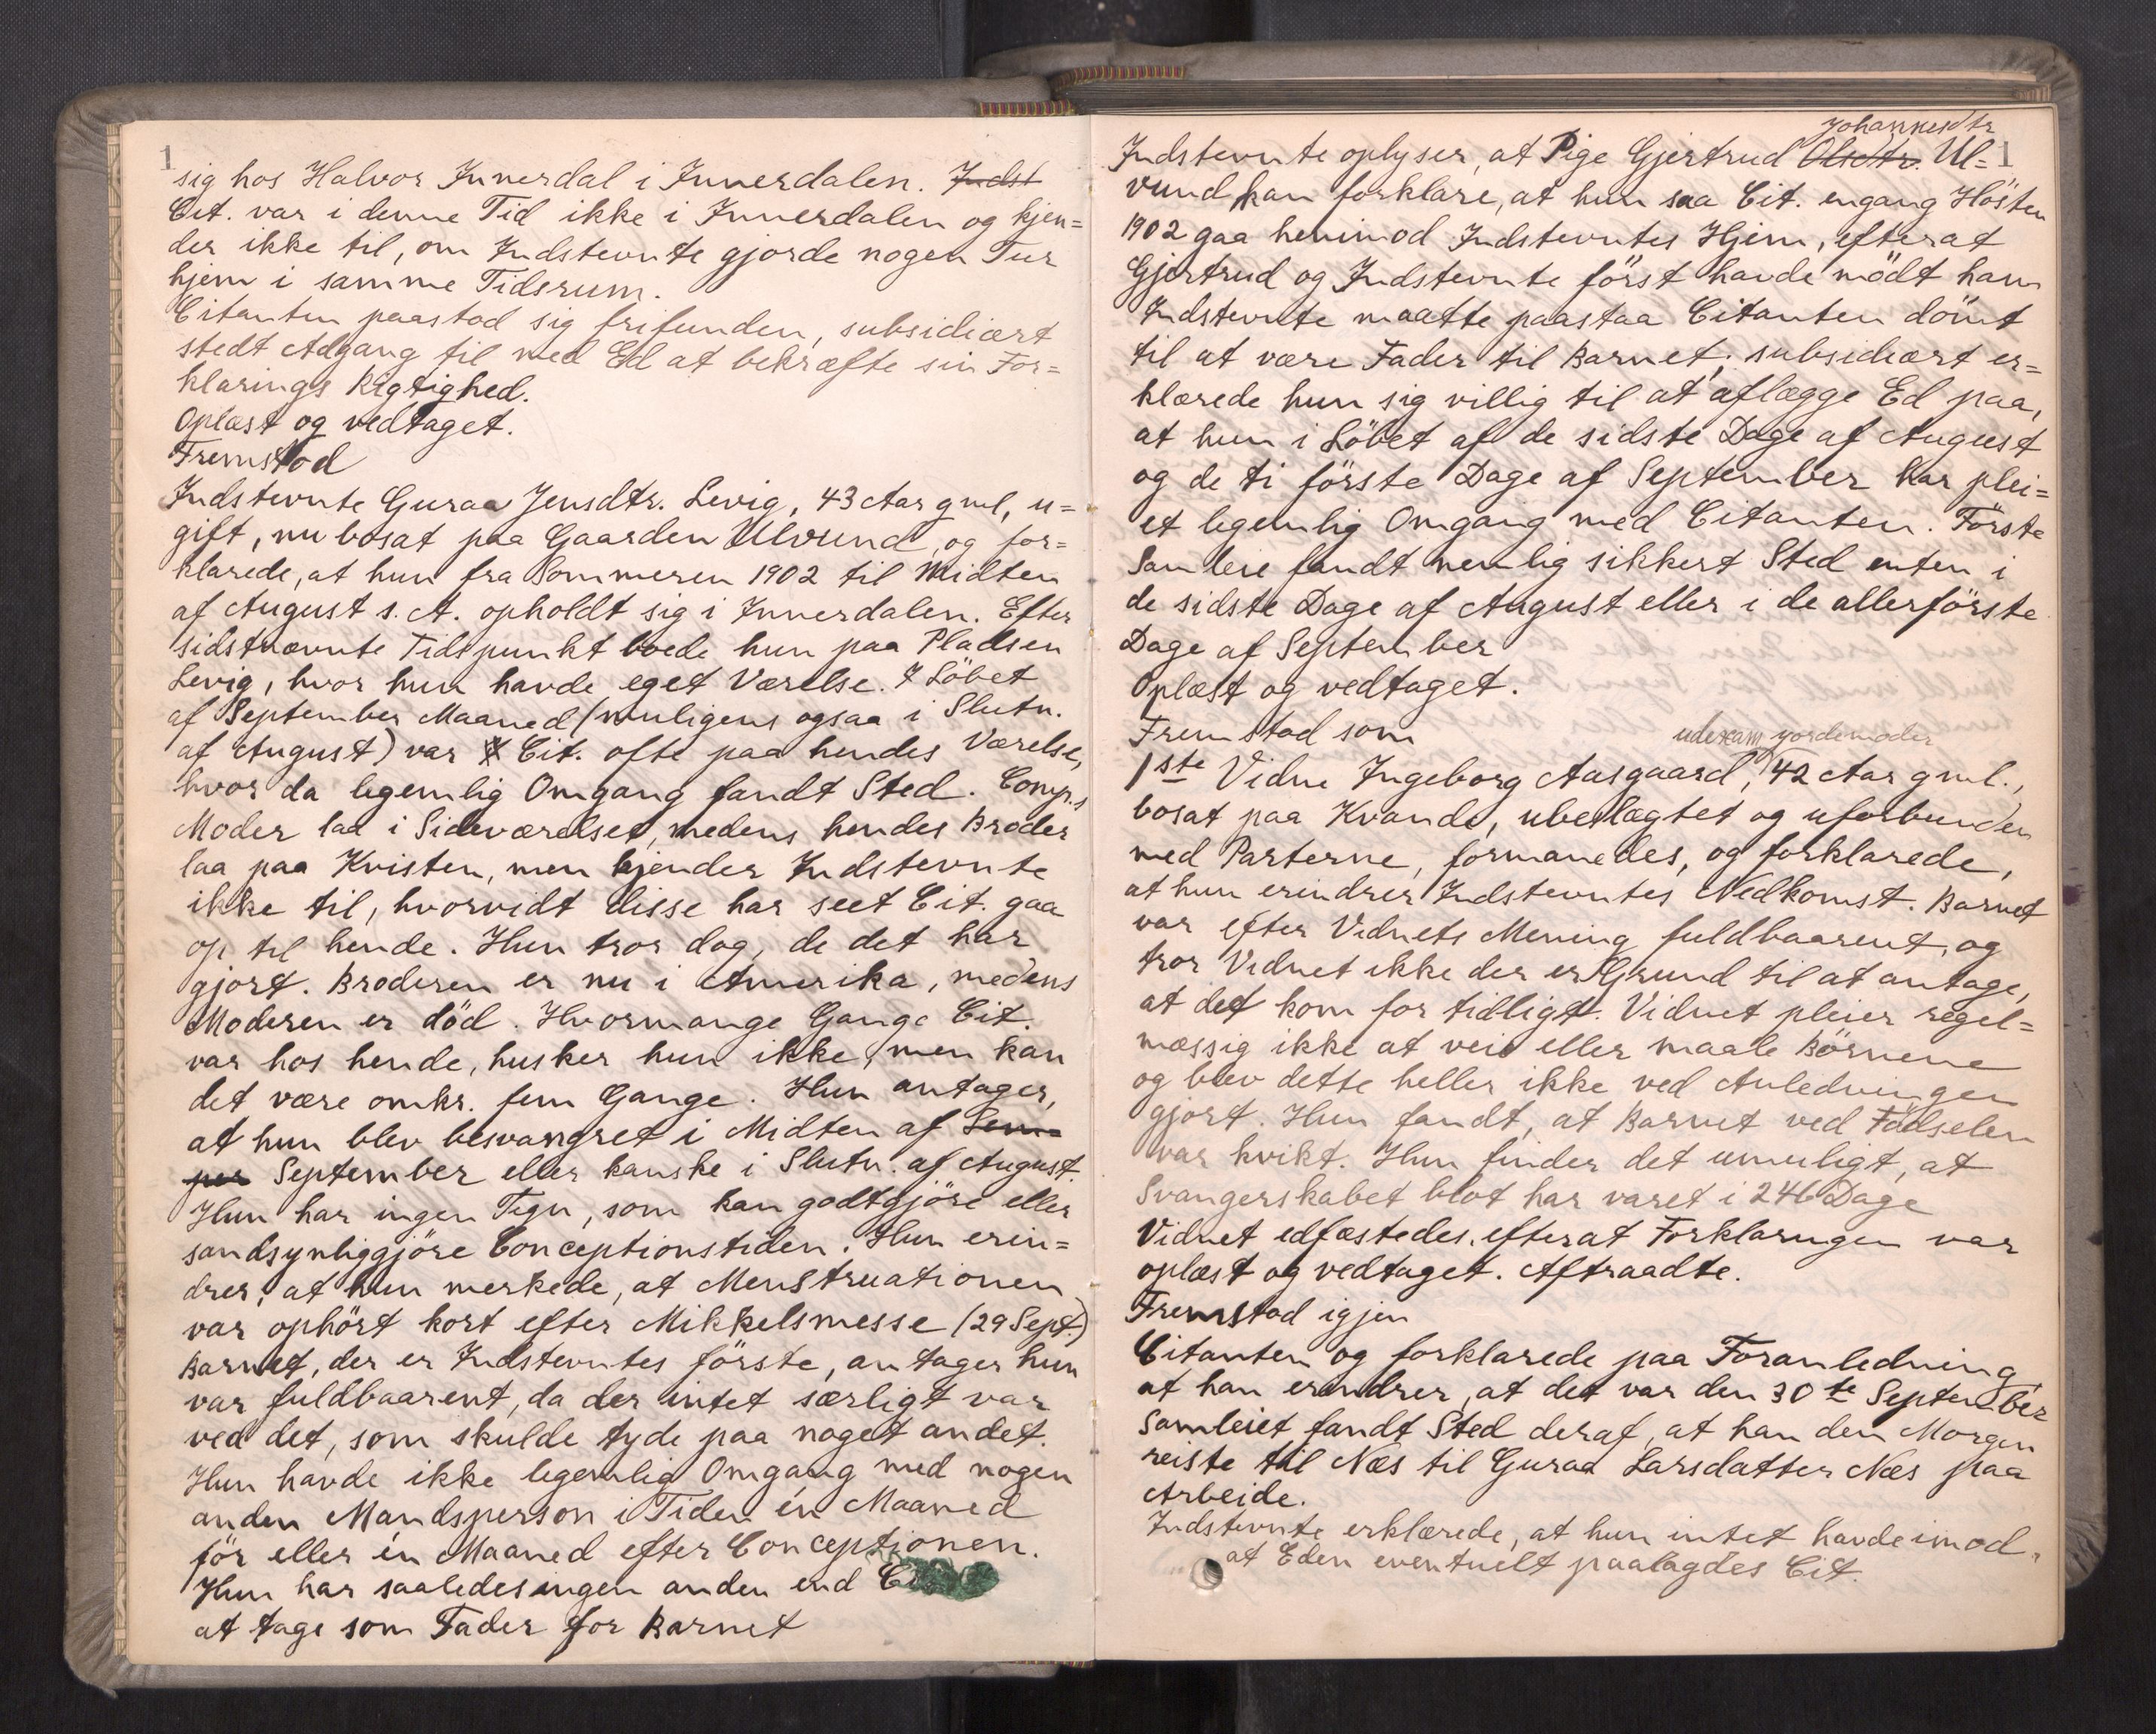 1
sig hos Halvor Innerdal i Innerdalen. Indst
Cit. var i denne Tid ikke i Innerdalen og kjen=
der ikke til, om Indstevnte gjorde nogen Tur
hjem i samme Tidsrum.
Citanten paastod sig frifunden, subsidiært
stedt Adgang til med Ed at bekræfte sin For=
klarings Rigtighed.
Oplæst og vedtaget.
Fremstod
Indstevnte Guraa Jensdtr. Levig, 43 Aar gml, u=
gift, nu bosat paa Gaarden Ulvund, og for=
klarede, at hun fra Sommeren 1902 til Midten
af August s. A. opholdt sig i Innerdalen. Efter
sidstnævnte Tidspunkt boede hun paa Pladsen
Levig, hvor hun havde eget Værelse. I Löbet
af September Maaned (muligens ogsaa i Slutn.
af August) var Cit. ofte paa hendes Værelse,
hvor da legemlig Omgang fandt Sted. Comp.s
Moder laa i Sideværelset, medens hendes Broder
laa paa Kvisten, men kjender Indstevnte
ikke til, hvorvidt disse har seet Cit. gaa
op til hende. Hun tror dog, de det har
gjort. Broderen er nu i Amerika, medens
Moderen er död. Hvormange Gange Cit.
var hos hende, husker hun ikke, men kan
det være omkr. fem Gange. Hun antager,
at hun blev besvangret i Midten af Sem=
per September eller kanske i Slutn. af August.
Hun har ingen Tegn, som kan godtgjöre eller
sandsynliggjöre Conceptionstiden. Hun erin=
drer, at hun merkede, at Menstruationen
var ophört kort efter Mikkelsmesse (29 Sept.)
Barnet, der er Indstevntes förste, antager hun
var fuldbaarent, da der intet særligt var
ved det, som skulde tyde paa noget andet.
Hun havde ikke legemlig Omgang med nogen
anden Mandsperson i Tiden én Maaned
för eller én Maaned efter Conceptionen.
Hun har saaledes ingen anden end
at tage som Fader for Barnet
Johannesdtr
Indstevnte oplyser, at Pige Gjertrud Olsdtr. Ul= 1
vund kan forklare, at hun saa Cit. engang Hösten
1902 gaa henimod Indstevntes Hjem, efterat
Gjertrud og Indstevnte först havde mödt ham
Indstevnte maatte paastaa Citanten dömt
til at være Fader til Barnet; subsidiært er=
klærede hun sig villig til at aflægge Ed paa,
at hun i Löbet af de sidste Dage af August
og de ti förste Dage af September har plei=
et legemlig Omgang med Citanten. Förste
Samleie fandt nemlig sikkert Sted enten i
de sidste Dage af August eller i de allerförste
Dage af September
Oplæst og vedtaget.
Fremstod som
udexam jordemoder
1ste Vidne Ingeborg Aasgaard, 42 Aar gml.,
bosat paa Kvande, uberygtet og uforbunden
med Parterne, formanedes, og forklarede,
at hun erindrer Indstevntes Nedkomst. Barnet
var efter Vidnets Mening fuldbaarent, og
tror Vidnet ikke der er Grund til at antage,
at det kom for tidligt. Vidnet pleier regel=
mæssig ikke at veie eller maale Börnene
og blev dette heller ikke ved Anledningen
gjort. Hun fandt, at Barnet ved Födselen
var kvikt. Hun finder det umuligt, at
Svangerskabet blot har varet i 246 Dage
Vidnet edfæstedes, efterat Forklaringen var
oplæst og vedtaget. Aftraadte.
Fremstod igjen
Citanten og forklarede paa Foranledning,
at han erindrer, at det var den 30te September
Samleiet fandt Sted deraf, at han den Morgen
reiste til Næs til Guraa Larsdatter Næs paa
Arbeide.
Indstevnte erklærede, at hun intet havde imod,
at Eden eventuelt paalagdes Cit.